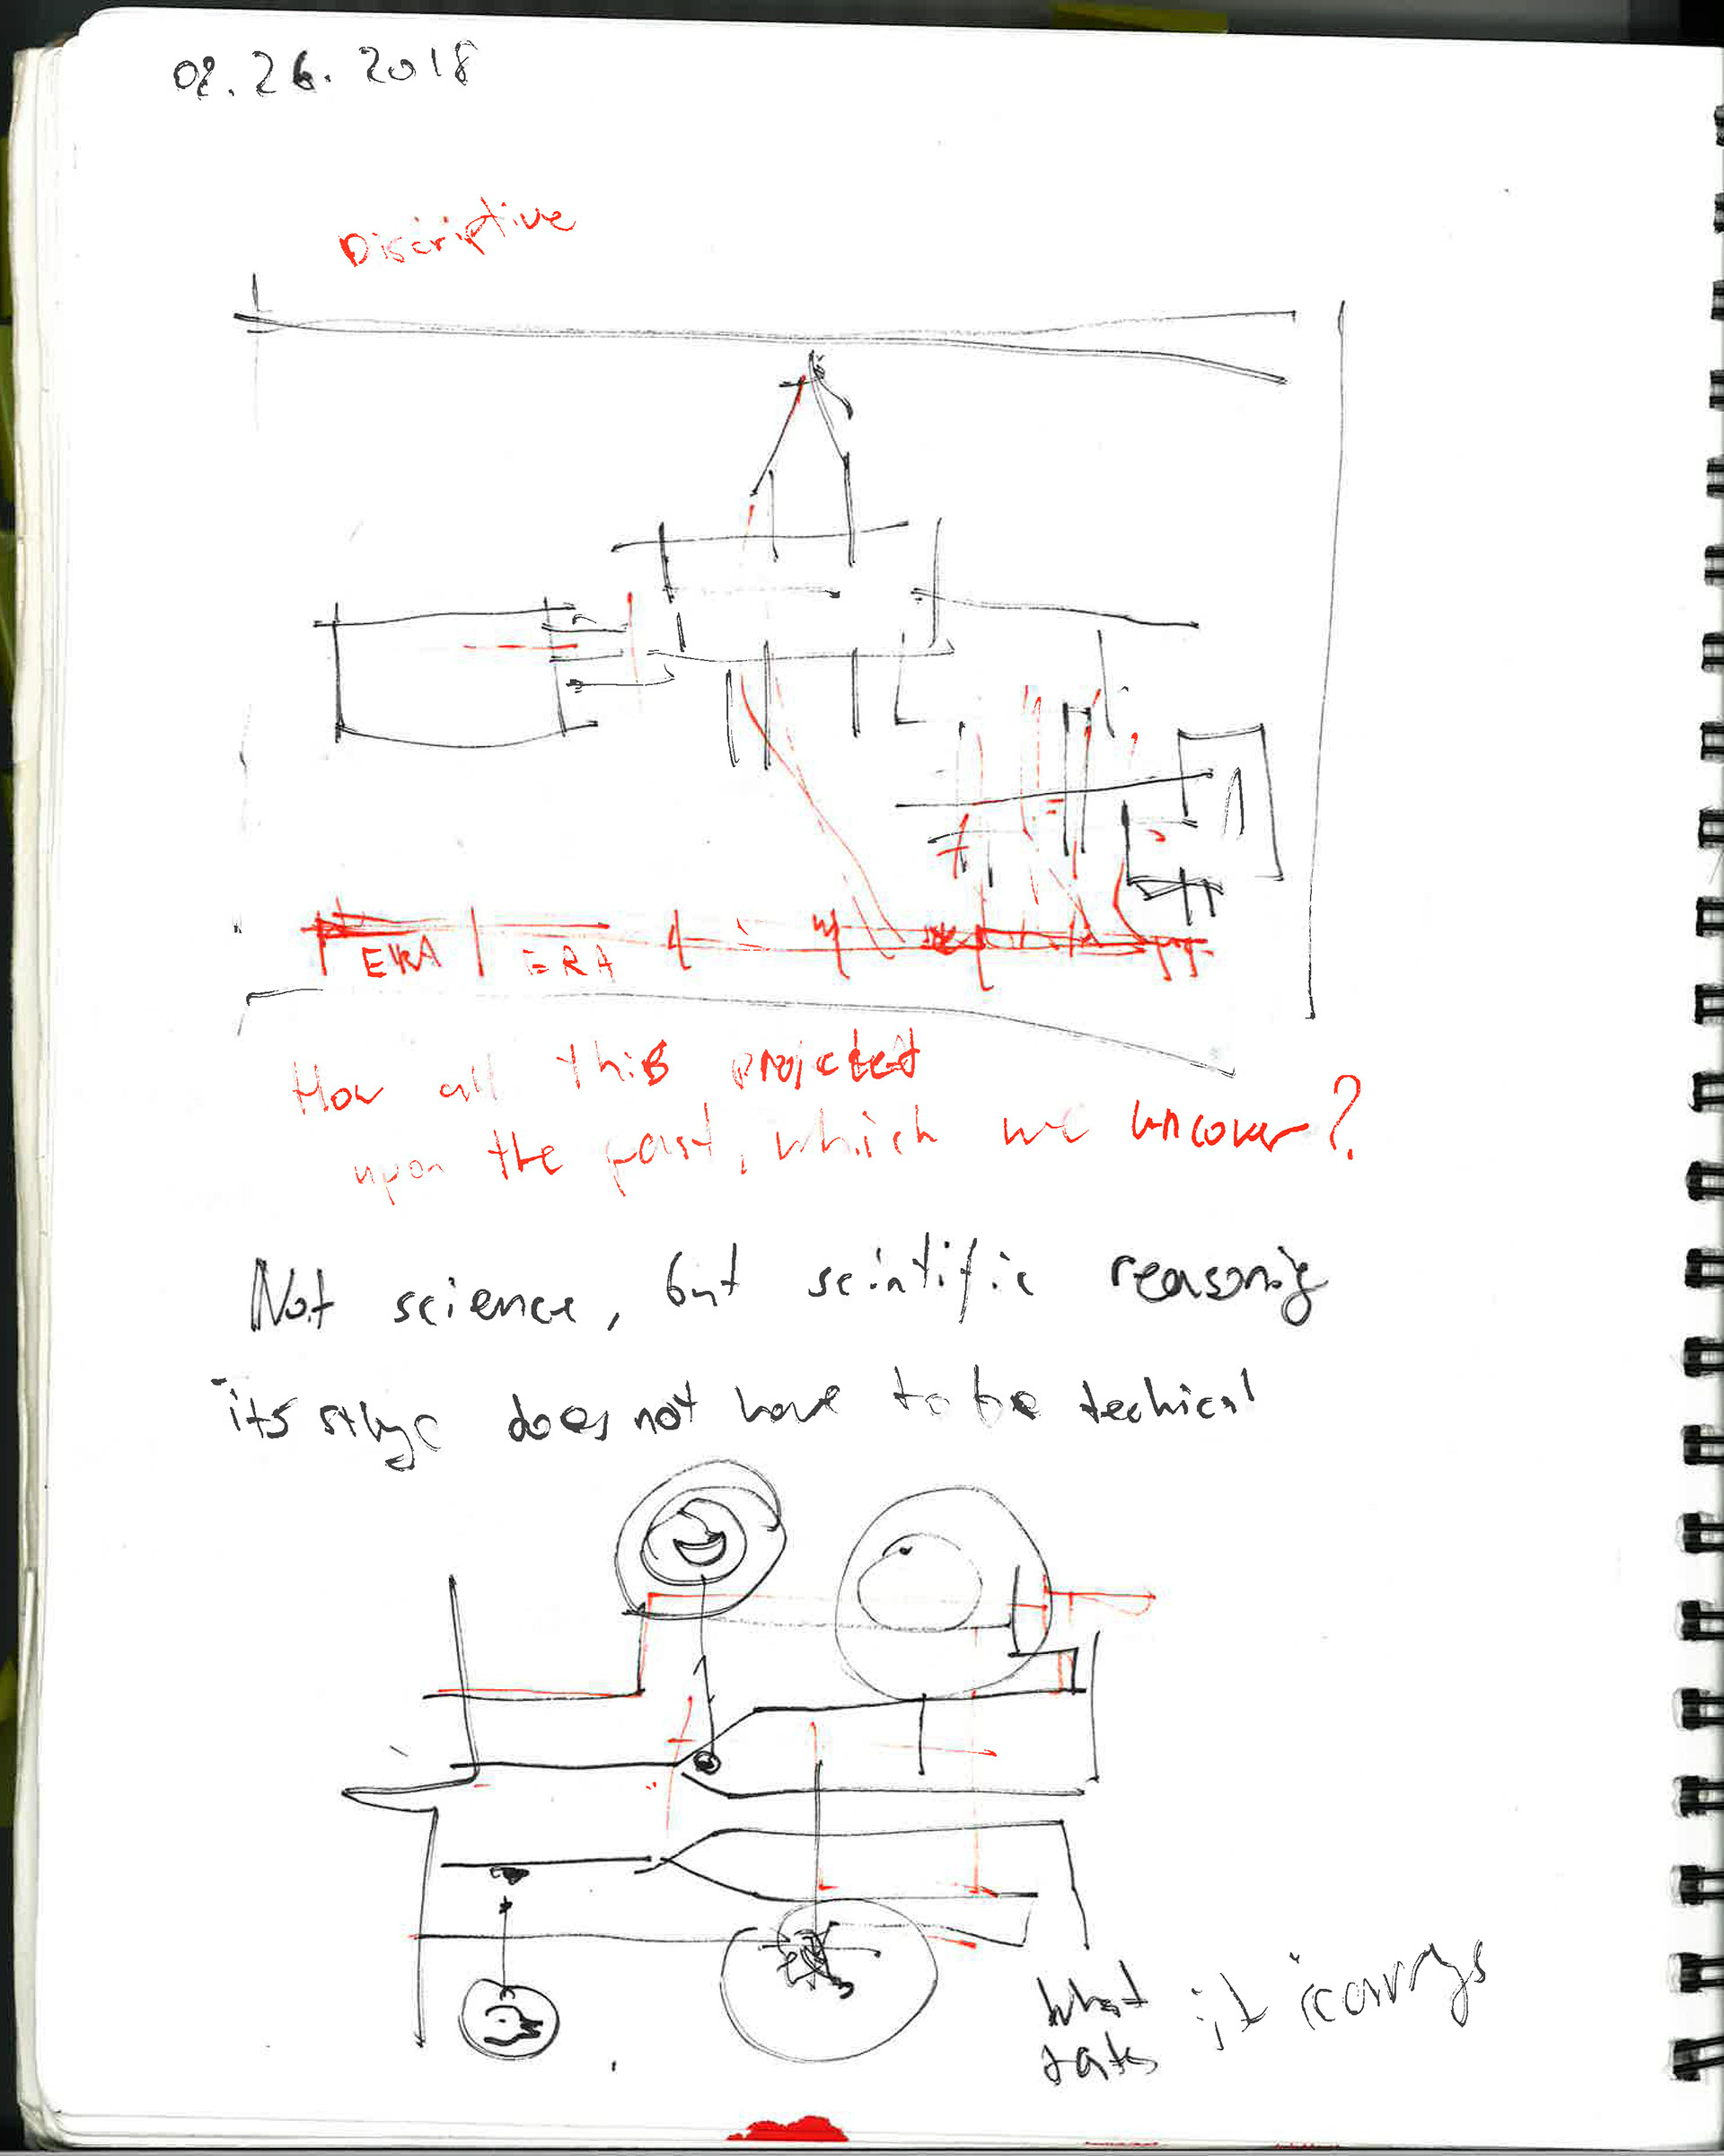 08.26.2018
Discriptive
ERA ERA
How all this projected
upon the past, which we uncover?
Not science, but scintific reasonig
its does not have to be techical
what it